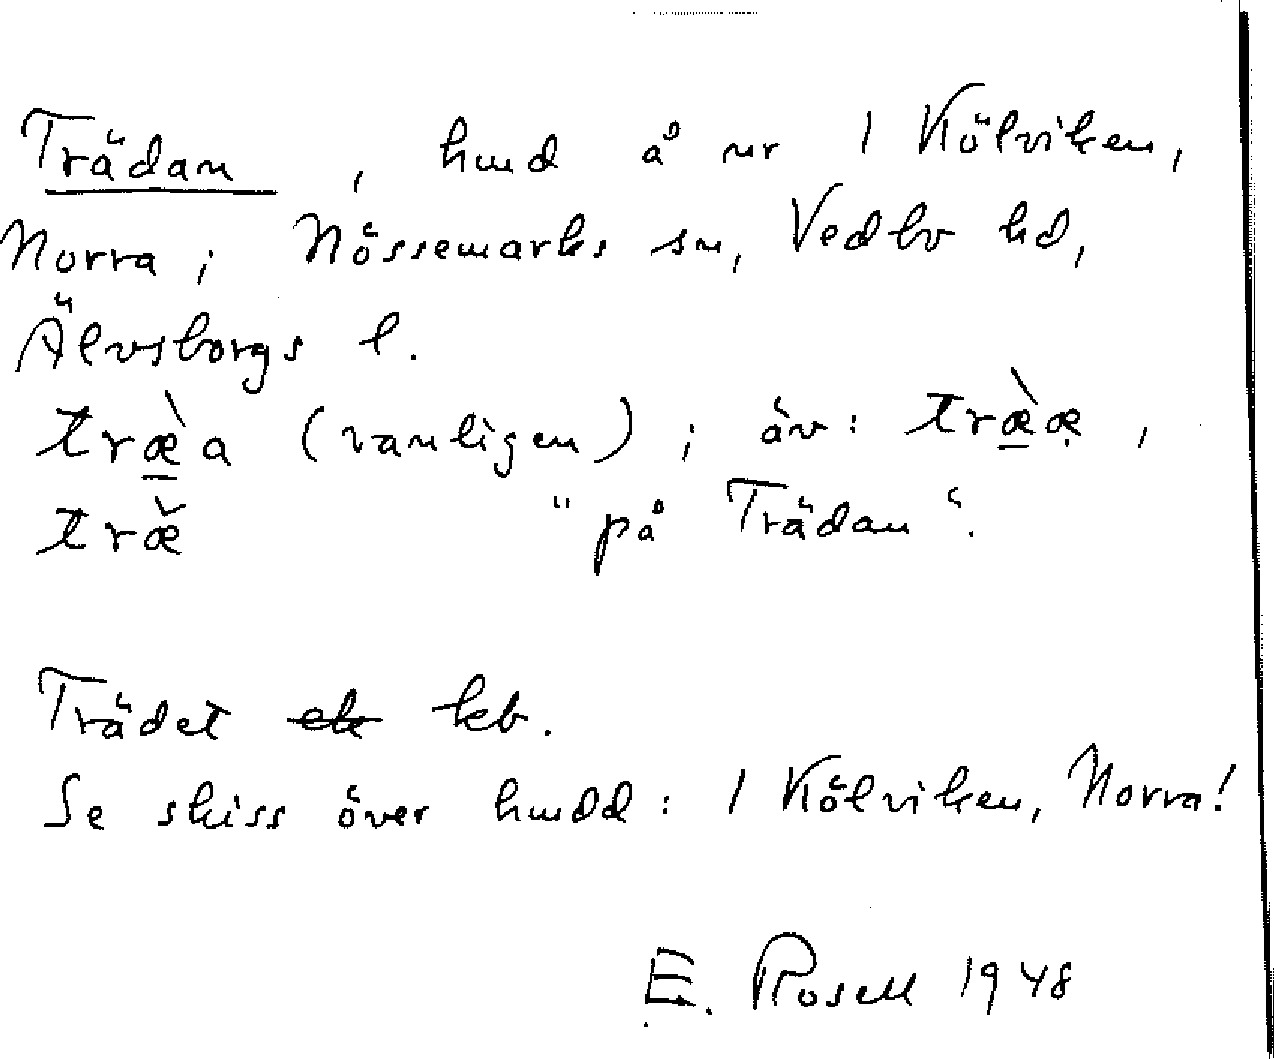 Trädan, hmd å nr 1 Kölviken,
Norra; Nössemarks sn, Vedbo hd,
Älvsborgs l.
træ̀a (vanligen); äv: træ̀æ,
træ̌ "på Trädan".
Trädet kb.
Se skiss över hmdd: 1 Kölviken, Norra!
E. Rosell 1948